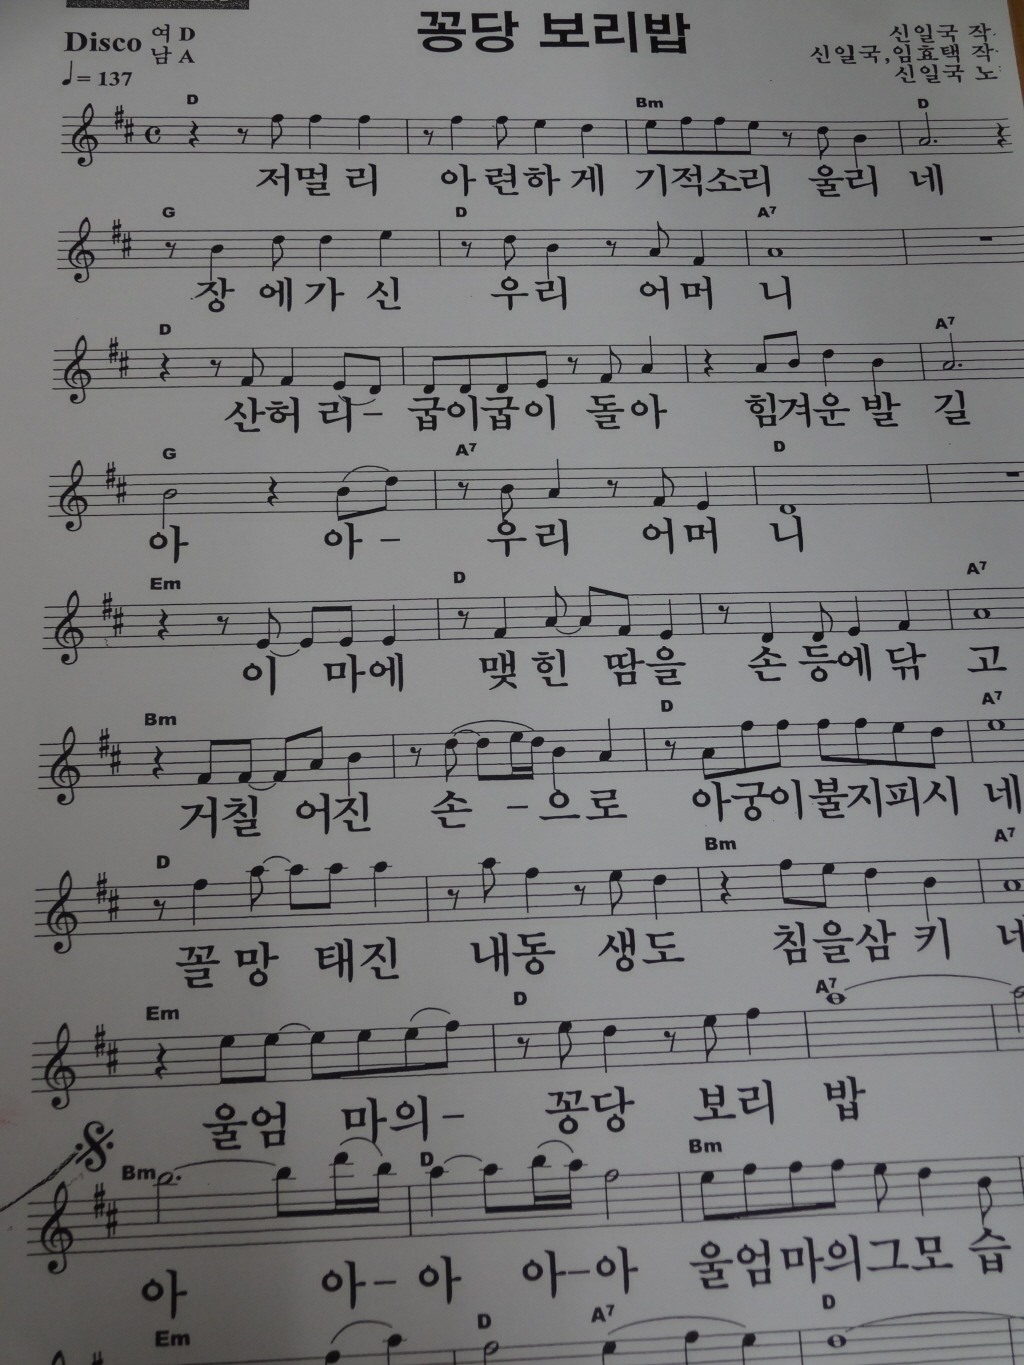 꽁당 보리밥
Disco 여 D
남 A
♩= 137
신일국 작
신일국,임효택 작
신일국 노
D Bm D
저멀 리 아 련하 게 기적소리 울리 네
G D A7
장 에가 신 우리 어머 니
D A7
산허 리- 굽이굽이 돌아 힘겨운 발 길
G A7 D
아 아 - 우리 어머 니
Em D A7
이 마에 맺 힌 땀을 손 등에 닦 고
Bm D A7
거칠 어진 손 -으로 아궁이불지피시 네
D Bm A7
꼴 망 태진 내동 생도 침을삼 키
Em D A7
울엄 마의- 꽁당 보리 밥
Bm D Bm
아 아- 아 아-아 울엄마의그모 습
Em D A7 D